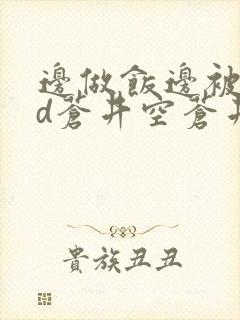 邊做飯邊被
d蒼井空蒼井
貴族丑丑